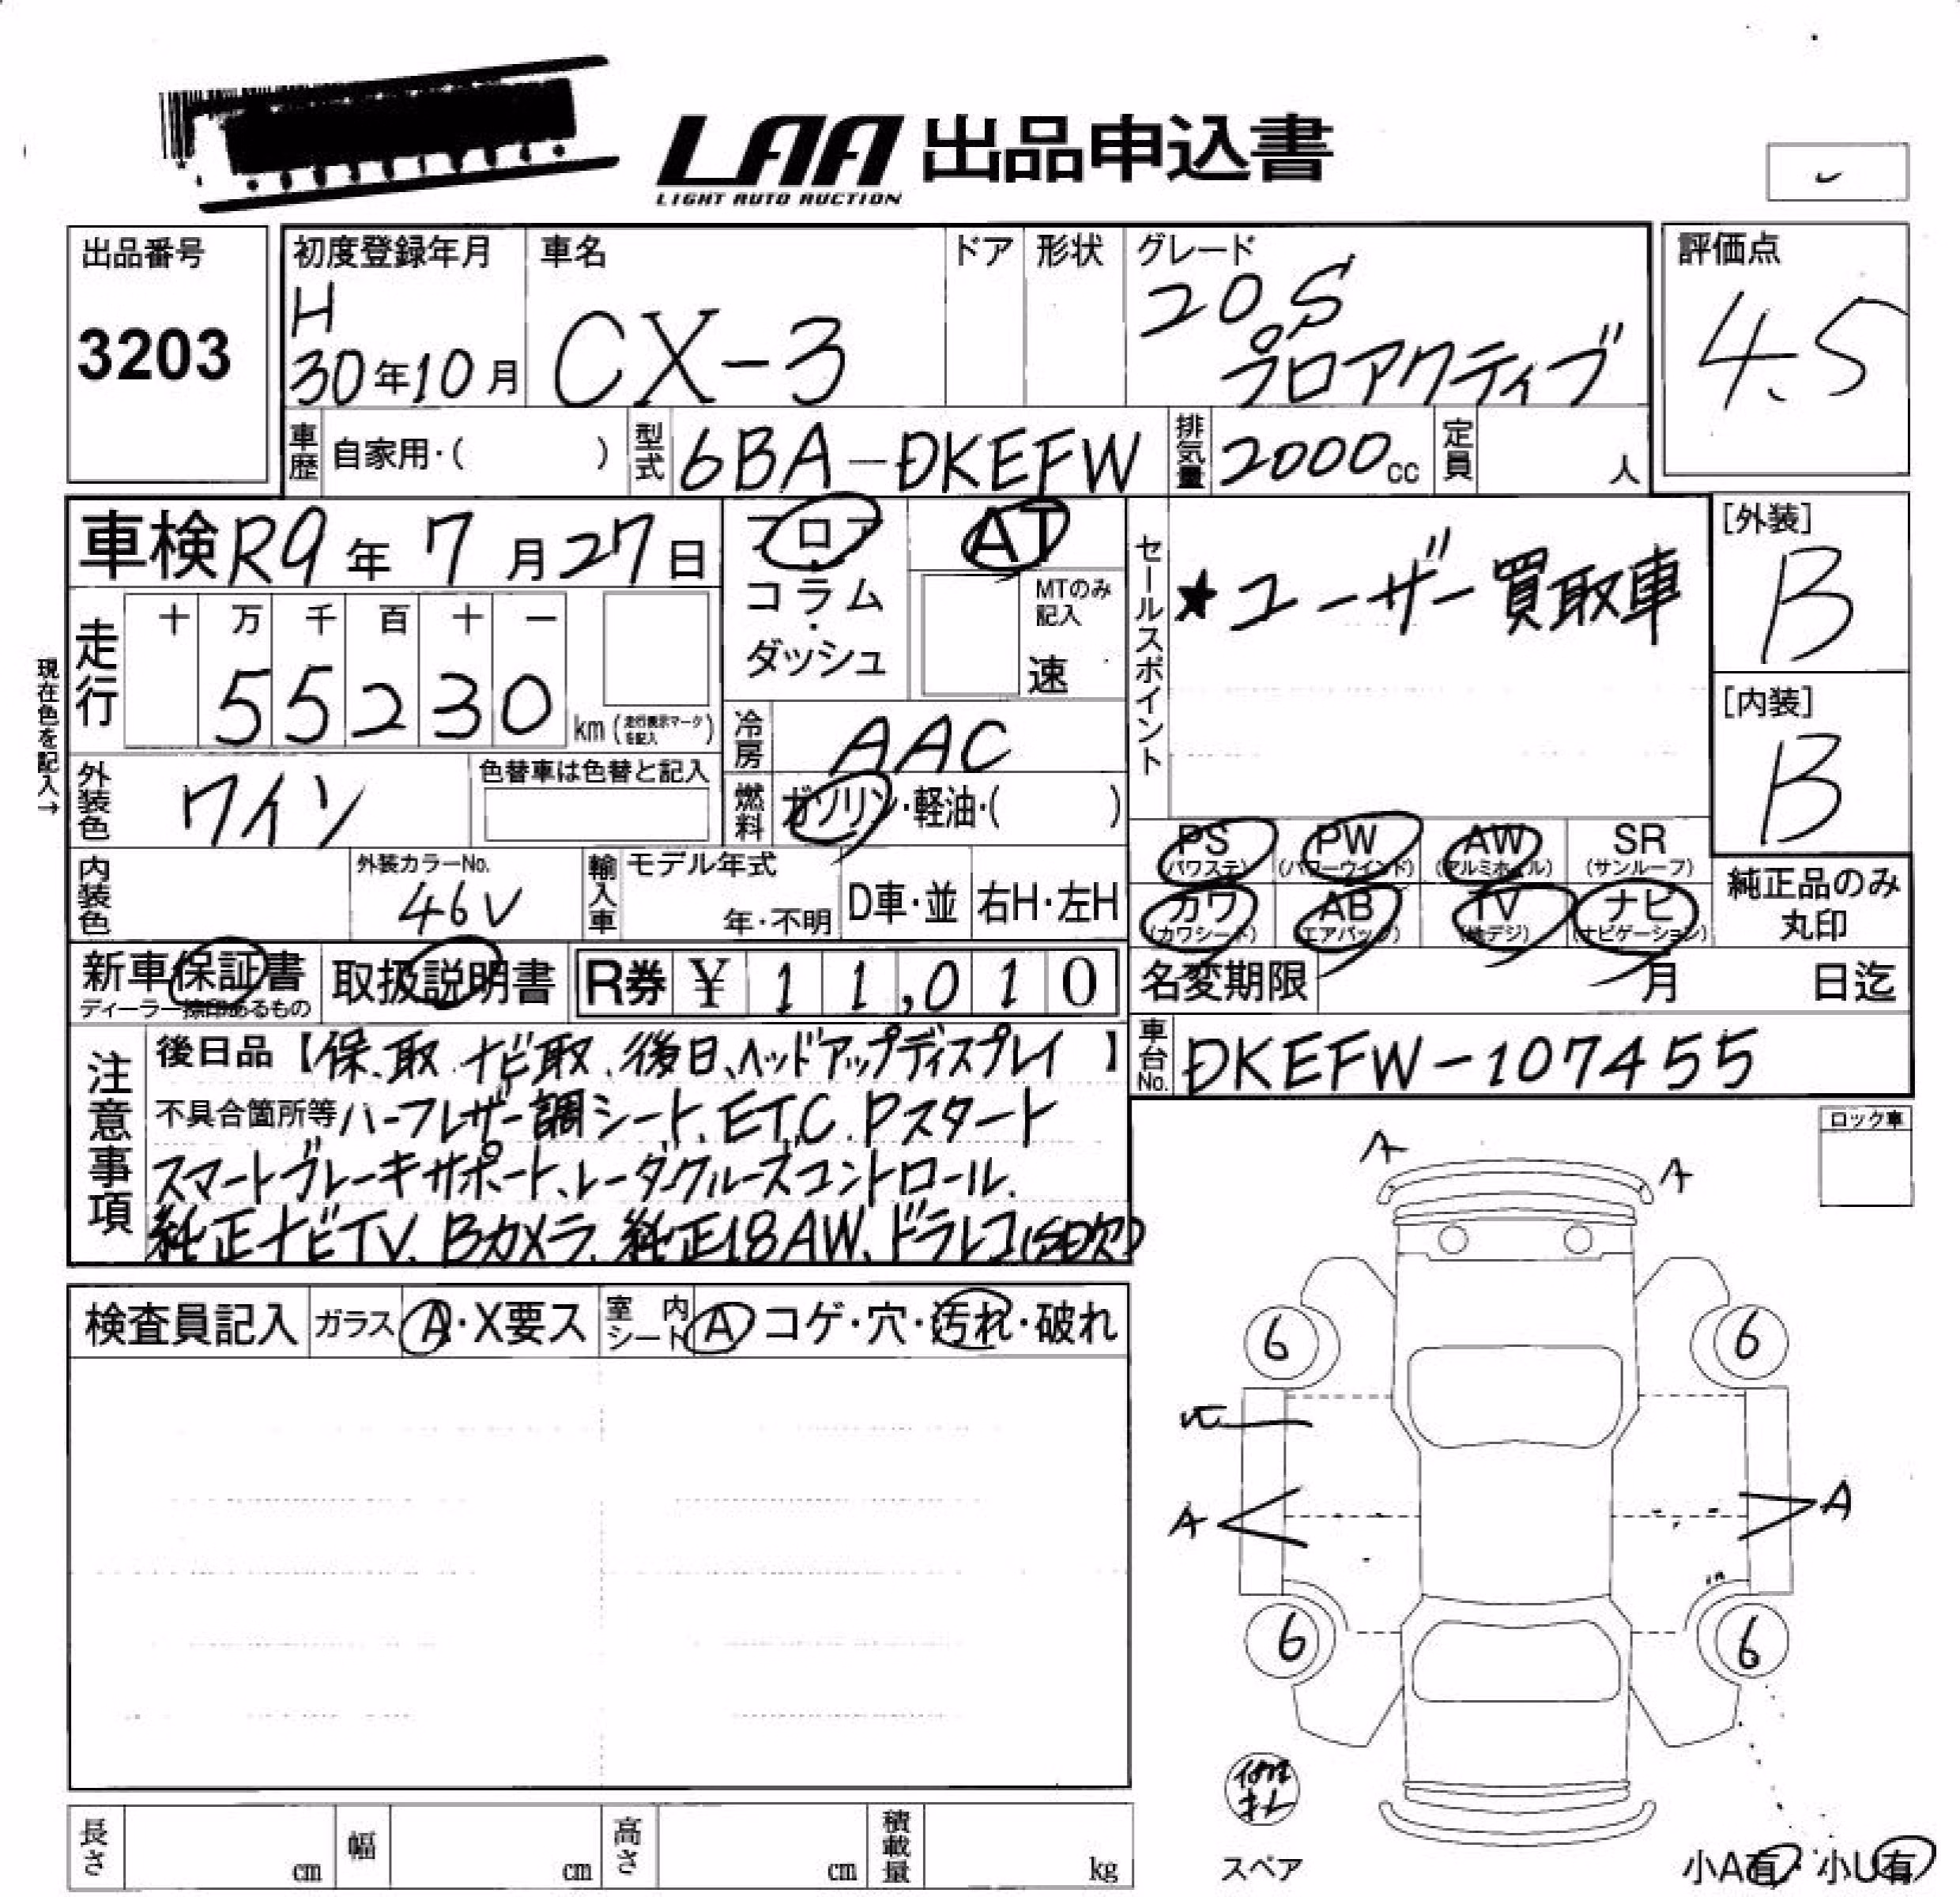 LAA 出品申込書
LIGHT AUTO AUCTION
出品番号
3203
初度登録年月
H
30年10月
車名
CX-3
ドア
形状
グレード
20S
プロアクティブ
評価点
4.5
車歴
自家用・( )
型式
6BA-DKEFW
排気量
2000cc
定員
人
車検R9年7月27日
フロア
・
コラム
・
ダッシュ
AT
MTのみ
記入
速
セールスポイント
★ユーザー買取車
[外装]
B
[内装]
B
現在色を記入→
走行
十 万 千 百 十 一
5 5 2 3 0
km (走行表示マークを記入)
冷房
AAC
外装色
ワイン
色替車は色替と記入
燃料
ガソリン・軽油・( )
内装色
外装カラーNo.
46V
輸入車
モデル年式
年・不明
D車・並
右H・左H
PS
(パワステ)
PW
(パワーウインド)
AW
(アルミホイール)
SR
(サンルーフ)
カワ
(カワシート)
AB
(エアバック)
TV
(地デジ)
ナビ
(ナビゲーション)
純正品のみ
丸印
新車保証書
ディーラー捺印あるもの
取扱説明書
R券 ¥ 11,010
名変期限 月 日迄
注意事項
後日品【保.取.ナビ取.後日、ヘッドアップディスプレイ】
不具合箇所等 ハーフレザー調シート、ETC.Pスタート
スマートブレーキサポート、レーダクルーズコントロール.
純正ナビTV、Bカメラ、純正18AW、ドラレコ(SD欠)
車台No.
DKEFW-107455
ロック車
検査員記入
ガラス
A・X要ス
室内
シート
A コゲ・穴・汚れ・破れ
A
A
6
6
A
A
6
6
修
キット
スペア
小A有・小U有
長さ
cm
幅
cm
高さ
cm
積載量
kg